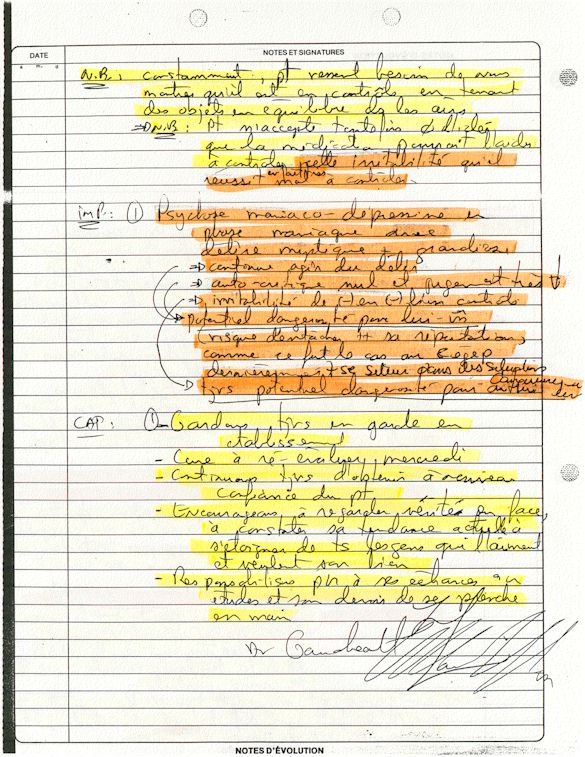 DATE
NOTES ET SIGNATURES
a m d
N.B.: constamment, pt ressent besoin de nous
montrer qu'il est en contrôle, en tenant
des objets en équilibre ds les airs
N.B.: Pt n'accepte toutefois
que la médication pourrait l'aider
à contrôler cette irritabilité qu'il
réussit mal à contrôler.
IMP.: ① Psychose maniaco-dépressive en
phase maniaque avec
délire mystique + grandiose
→ continue agir du délire
→ auto-critique nul et jugement très ↓
→ irritabilité de (-) en (-) bien contrôlé
Potentiel dangerosité pour lui-m̂
(risque d'entacher sa réputation,
comme ce fut le cas au Cégep
dernièrement + se situer dans des situations
tjrs potentiel dangerosité pour autrui
CAP: ①- Gardons tjrs en garde en
établissement
- Cure à ré-évaluer mercredi
- Continuons tjrs d'obtenir à nouveau
confiance du pt
- Encourageons à regarder vérités en face,
à constater sa tendance actuelle à
s'éloigner de ts les gens qui l'aiment
et veulent son bien
- Responsabilisons pt à ses échéances
études et son devoir de se prendre
en main
Dr
NOTES D'ÉVOLUTION